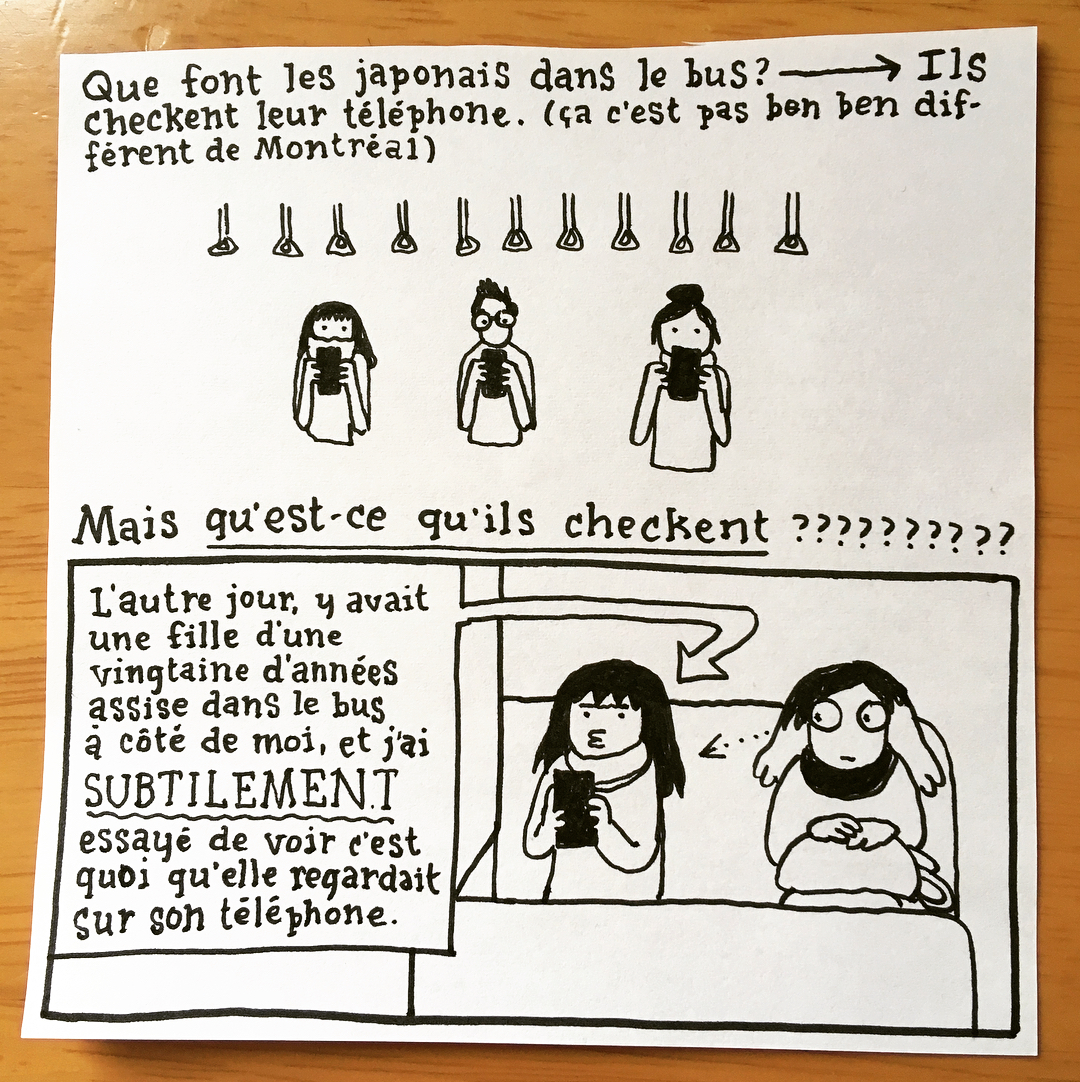 Que font les japonais dans le bus? → Ils
checkent leur téléphone. (ça c'est pas ben ben dif-
férent de Montréal)
Mais qu'est-ce qu'ils checkent ??????????
L'autre jour, y avait
une fille d'une
vingtaine d'années
assise dans le bus
à côté de moi, et j'ai
SUBTILEMENT
essayé de voir c'est
quoi qu'elle regardait
sur son téléphone.